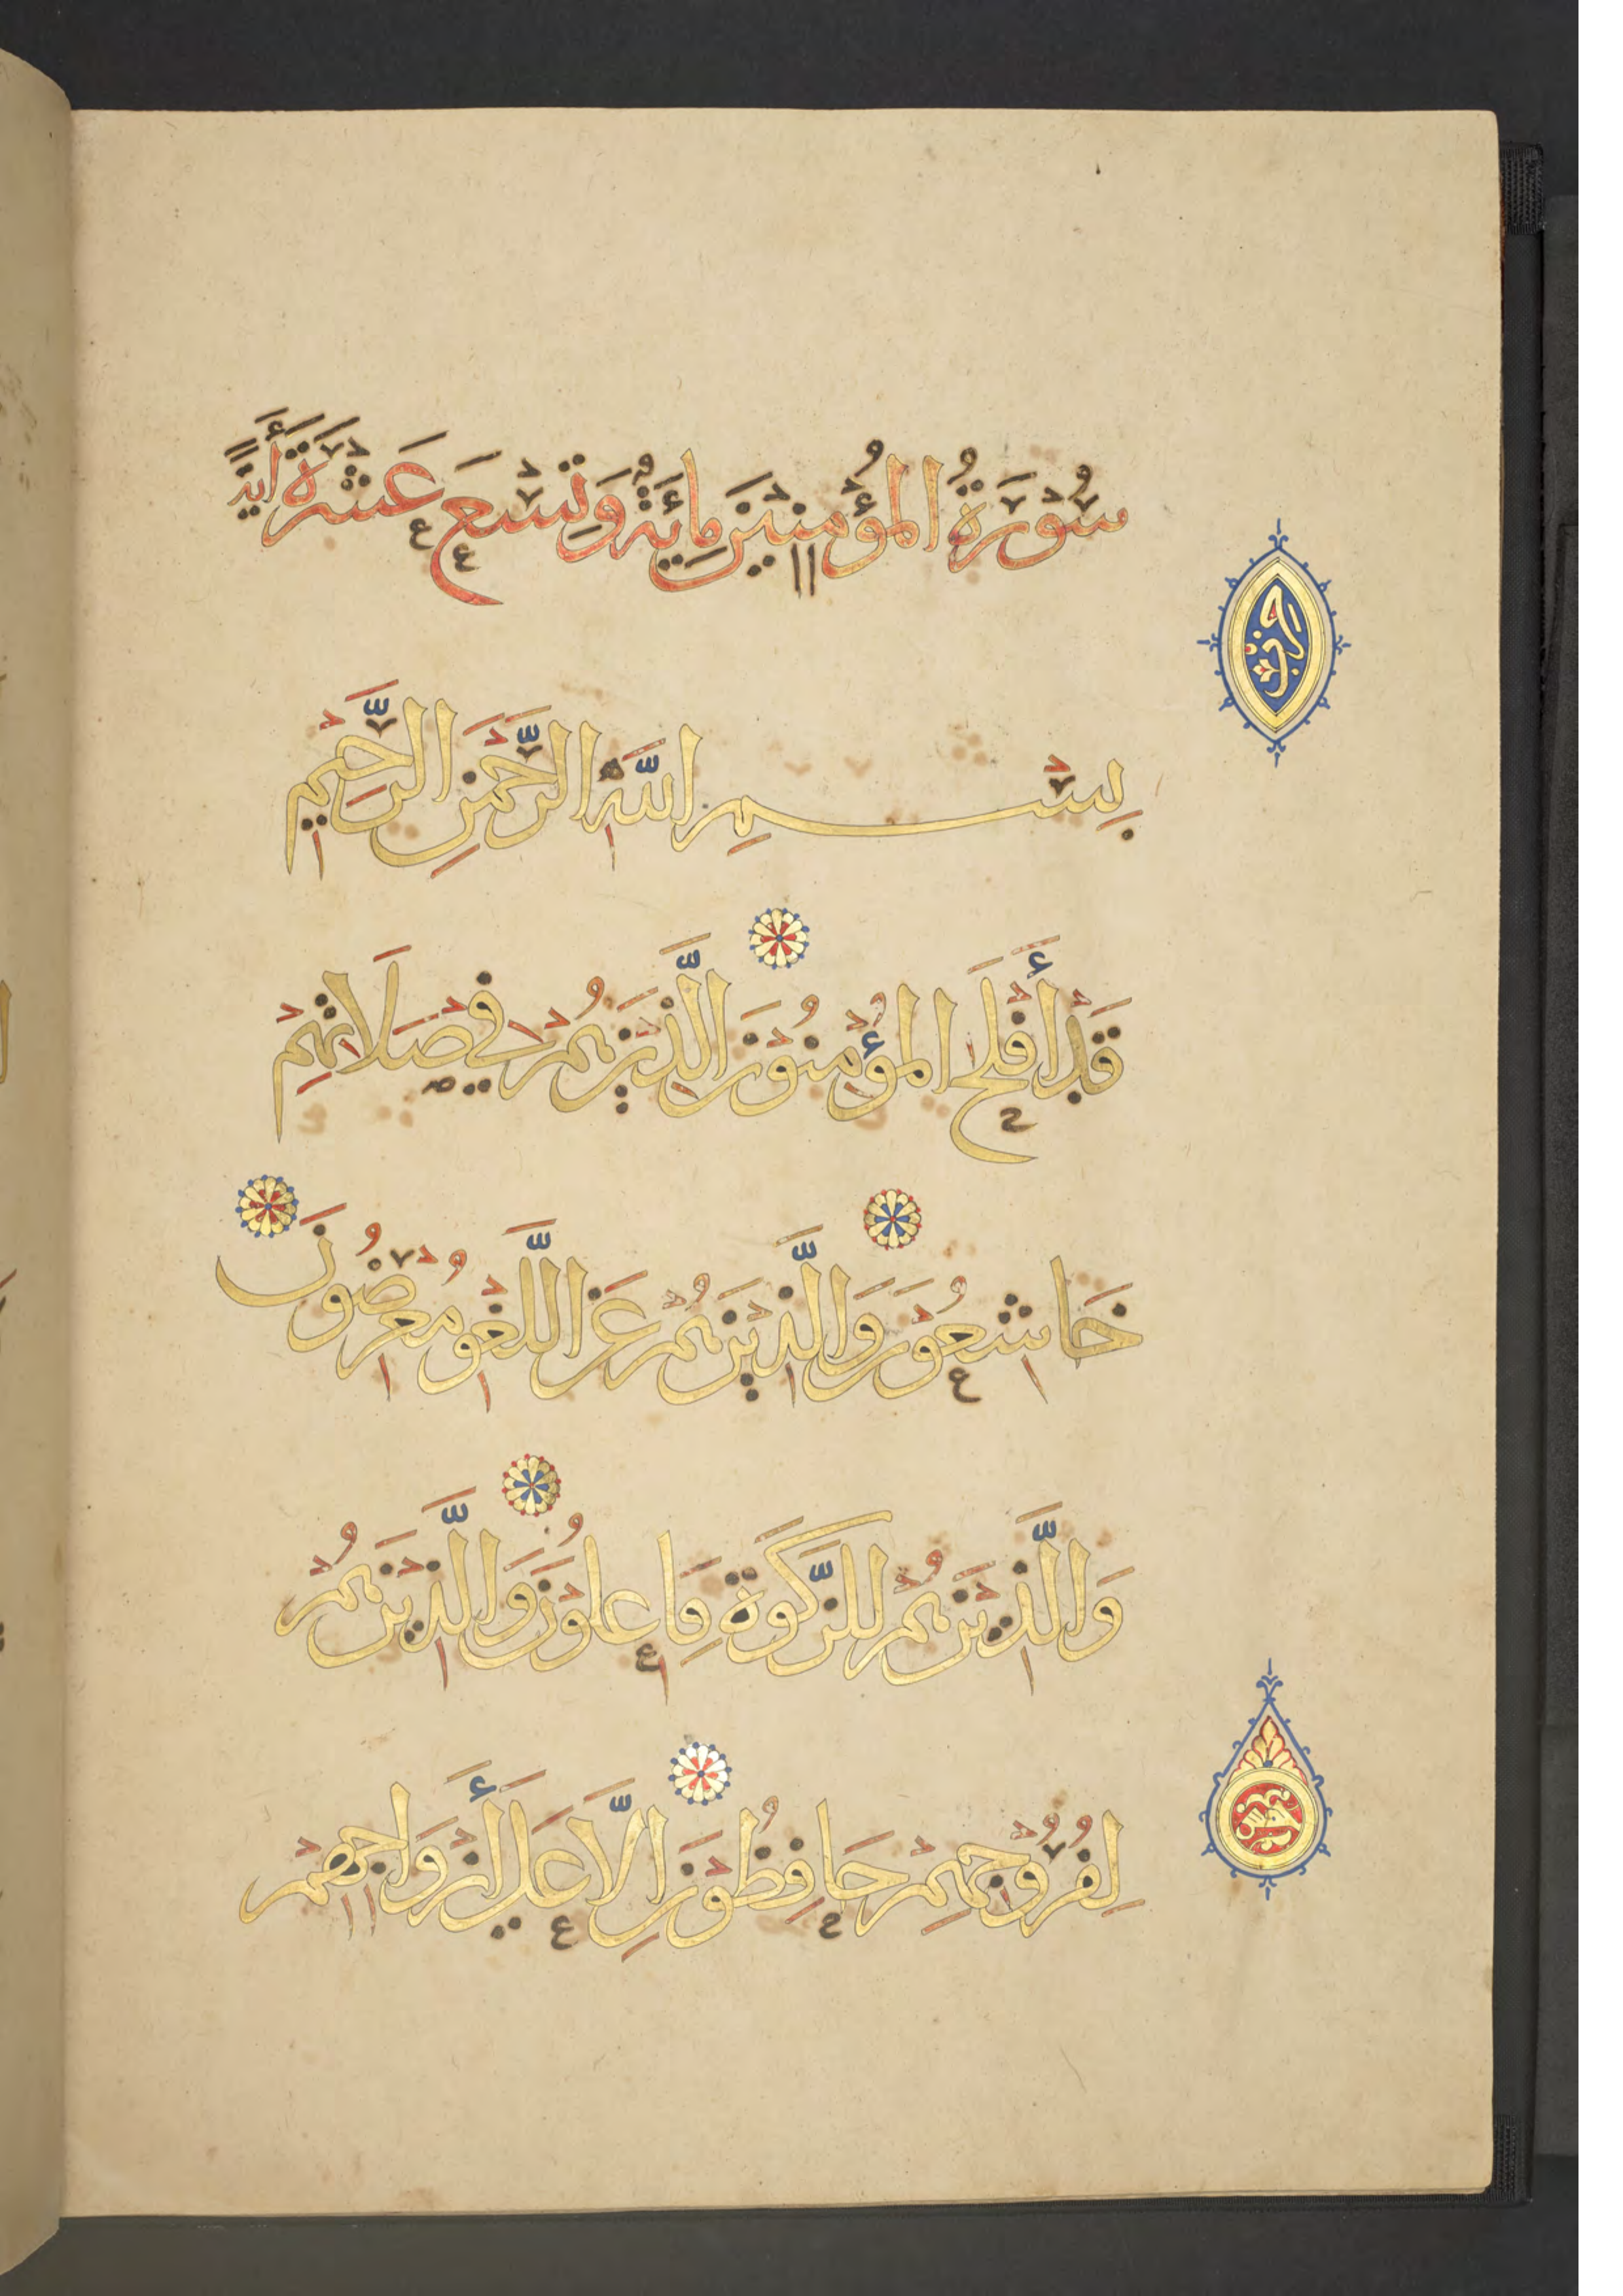 سُوْرَةُ الْمُؤْمِنِيْنَ مِائَةٌ وَتِسْعَ عَشْرَةَ أَيَةً
بِسْمِ اللَّهِ الرَّحْمَنِ الرَّحِيمِ
قَدْ أَفْلَحَ الْمُؤْمِنُوْنَ الَّذِيْنَ هُمْ فِي صَلَاتِهِمْ
خَاشِعُوْنَ وَالَّذِيْنَ هُمْ عَنِ اللَّغْوِ مُعْرِضُونَ
وَالَّذِيْنَ هُمْ لِلزَّكَوةِ فَاعِلُوْنَ وَالَّذِيْنَ هُمْ
لِفُرُوْجِهِمْ حَافِظُوْنَ إِلَّا عَلَى أَزْوَاجِهِمْ
خمس